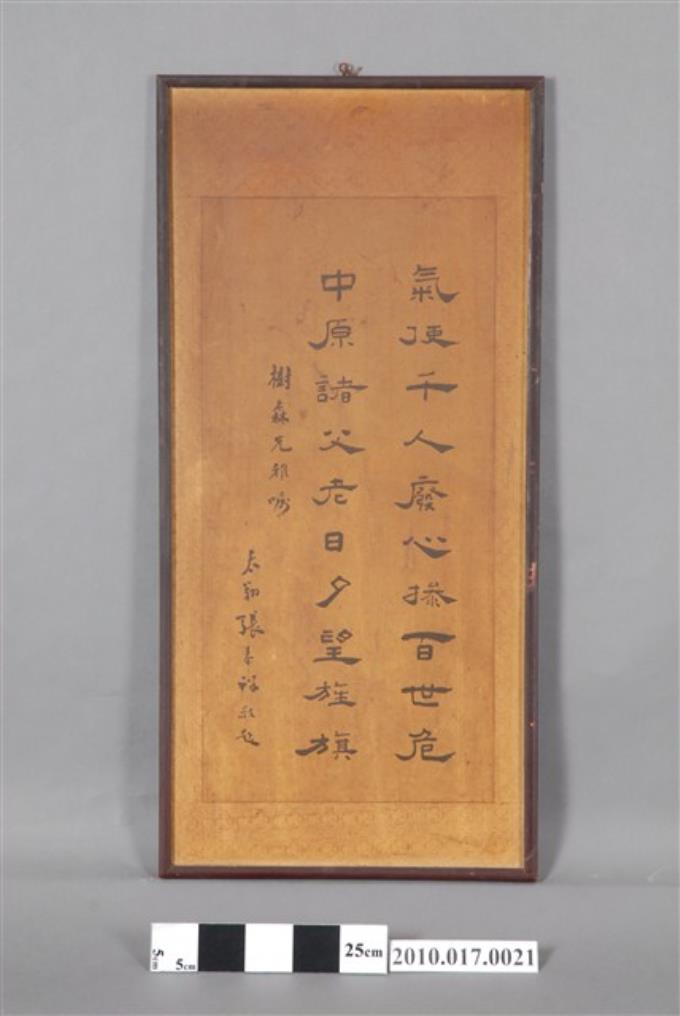 氣便千人廢心操百世危
中原諸父老日夕望旌旗
樹森兄雅囑
張
5cm
25cm
2010.017.0021